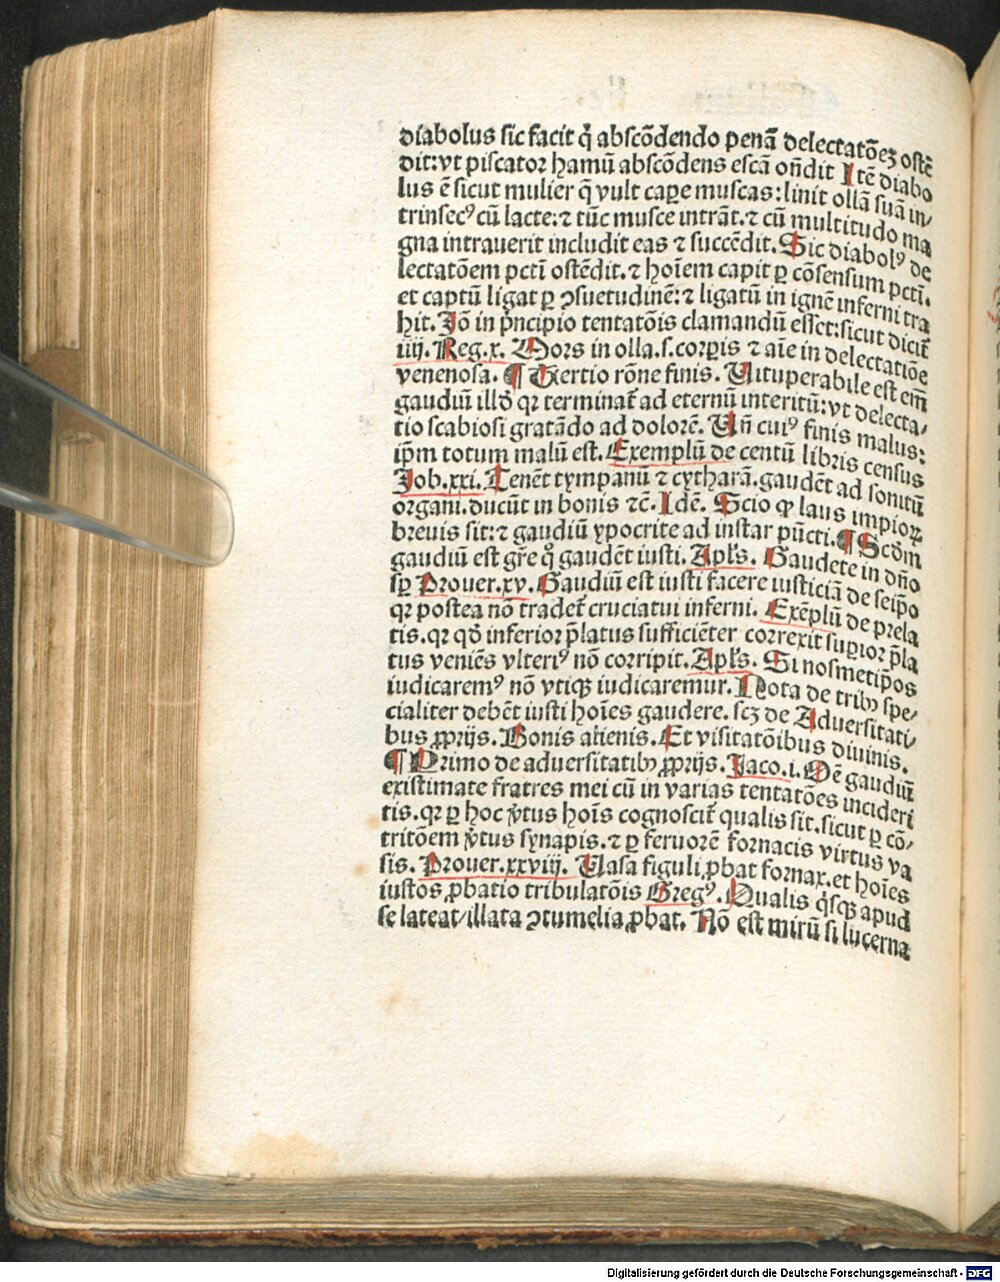 diabolus sic facit q̇ abscōdendo penā delectatōeʒ ostē
dit:vt piscator hamū abscōdens escā oñdit Itē diabo
lus ē sicut mulier q̄ vult capere muscas:linit ollā suā in⸗
trinsecꝰ cū lacte:⁊ tūc musce intrāt.⁊ cū multitudo ma
gna intrauerit includit eas ⁊ succēdit.Sic diabolꝰ de
lectatōem pctī ostēdit.⁊ hoīem capit ꝑ cōsensum pctī.
et captū ligat ꝑ ꝯsuetudinē:⁊ ligatū in ignē inferni tra
hit.Jō in pṅcipio tentatōis clamandū esset:sicut dicit᷑
iiij.Reg.x. Mors in olla.s.corpis ⁊ aīe in delectatiōe
venenosa.¶ Tertio rōne finis. Uituperabile est em̄
gaudiū illđ qꝛ terminat᷑ ad eternū interitū:vt delecta⸗
tio scabiosi gratādo ad dolorē. Uñ cuiꝰ finis malus:
ip̄m totum malū est.Exemplū de centū libris census
Job.xxi.Tenēt tympanū ⁊ cytharā.gaudēt ad sonitū
organi.ducūt in bonis ⁊ē.Idē. Scio ꝙ laus impioꝝ
breuis sit:⁊ gaudiū ypocrite ad instar pūcti.¶ Scđm
gaudiū est gr̄e qͦ gaudēt iusti.Apl̄s. Gaudete in dño
sꝑ Prouer.xv.Gaudiū est iusti facere iusticiā de seip̄o
qꝛ postea nō tradet᷑ cruciatui inferni. Exēplū de prela
tis.qꝛ qđ inferior p̄latus sufficiēter correxit suꝑior p̄la
tus veniēs vlteriꝰ nō corripit.Apl̄s. Si nosmetip̄os
iudicaremꝰ nō vtiqꝫ iudicaremur.Nota de tribꝰ spe⸗
cialiter debēt iusti hoīes gaudere.scʒ de Aduersitati⸗
bus ꝓprijs.Bonis alienis.Et visitatōibus diuinis.
¶ Primo de aduersitatibꝰ ꝓprijs.Jaco.i.Oē gaudiū
existimate fratres mei cū in varias tentatōes incideri
tis.qꝛ ꝑ hoc v̇tus hoīs cognoscit᷑ qualis sit.sicut ꝑ cō⸗
tritōem v̇tus synapis.⁊ ꝑ feruorē fornacis virtus va
sis.Prouer.xxviij. Uasa figuli ꝓbat fornax.et hoīes
iustos ꝓbatio tribulatōis Gregꝰ.Qualis q̇sqꝫ apud
se lateat/illata ꝯtumelia ꝓbat. Nō est mirū si lucerna
Digitalisierung gefördert durch die Deutsche Forschungsgemeinschaft - DFG